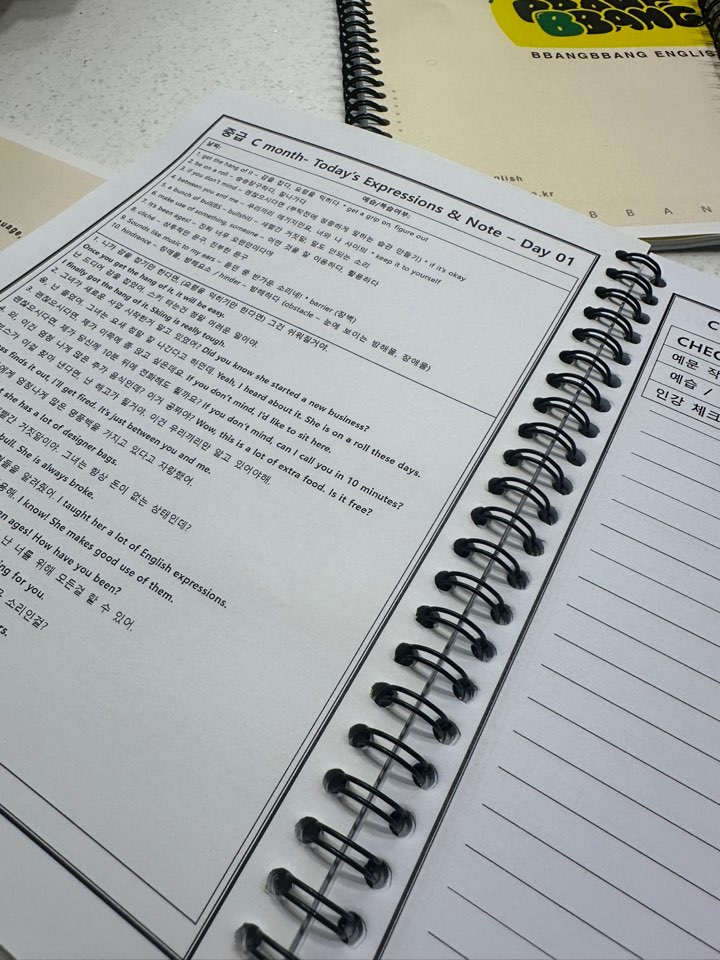 BBANG
BBANGBBANG ENGLIS
nglish
e.kr
B B A N
uage,
중급 C month- Today's Expressions & Note – Day 01
날짜: 예습/복습여부:
1. get the hang of it – 감을 잡다, 요령을 익히다 * get a grip on, figure out
2. be on a roll – 승승장구하다, 잘나가다
3. if you don't mind – 괜찮으시다면 (부탁전에 정중하게 말하는 습관 만들기) * if it's okay
4. between you and me – 우리끼리 얘기지만요, 너와 나 사이의 * keep it to yourself
5. a bunch of bull(BS – bullshit) – 새빨간 거짓말, 말도 안되는 소리
6. make use of something, someone – 어떤 것을 잘 이용하다, 활용하다
7. it's been ages! – 진짜 너무 오랜만이다야
8. cliché – 상투적인 문구, 진부한 문구
9. Sounds like music to my ears – 듣던 중 반가운 소리네!
10. hindrance – 장애물, 방해요소 / hinder – 방해하다 (obstacle – 눈에 보이는 방해물, 장애물) * barrier (장벽)
1. 네가 감을 잡기만 한다면, (요령을 익히기만 한다면) 그건 쉬워질거야.
Once you get the hang of it, it will be easy.
난 드디어 감을 잡았어. 스키 타는건 정말 어려운 일이야.
I finally got the hang of it. Skiing is really tough.
2. 그녀가 새로운 사업 시작한거 알고 있었어? Did you know she started a new business?
응, 난 들었어. 그녀는 요새 정말 잘 나간다고 하던데. Yeah, I heard about it. She is on a roll these days.
3. 괜찮으시다면, 제가 이쪽에 좀 앉고 싶은데요. If you don't mind, I'd like to sit here.
괜찮으시다면, 제가 당신께 10분 뒤에 전화해도 될까요? If you don't mind, can I call you in 10 minutes?
4. 와, 이건 엄청 나게 많은 추가 음식인데? 이거 공짜야? Wow, this is a lot of extra food. Is it free?
스가 이걸 찾아 낸다면, 난 해고가 될거야. 이건 우리끼리만 알고 있어야해.
ss finds it out, I'll get fired. It's just between you and me.
에게 엄청나게 많은 명품백을 가지고 있다고 자랑했어.
t she has a lot of designer bags.
빨간 거짓말이야. 그녀는 항상 돈이 없는 상태인데?
bull. She is always broke.
들을 알려줬어. I taught her a lot of English expressions.
용해. I know! She makes good use of them.
en ages! How have you been?
난 너를 위해 모든걸 할 수 있어.
ing for you.
운 소리인걸?
rs.
C
CHEC
예문 작
예습 /
인강 체크